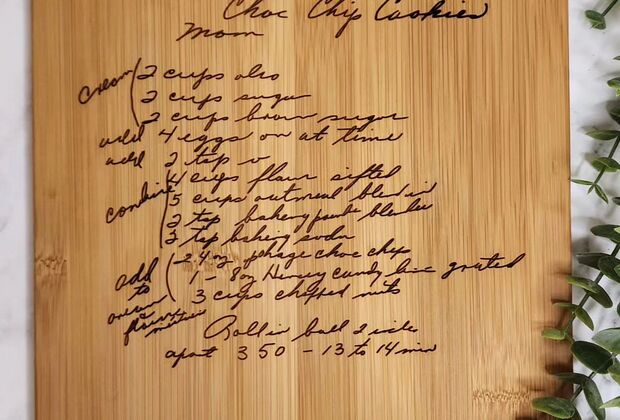 Choc Chip Cookies
Mom
cream 2 cups oleo
2 cups sugar
2 cups brown sugar
add 4 eggs on at time
add 2 tsp v
combine 4 cups flour sifted
5 cups outmeal blended
2 tsp baking blender
2 tsp baking soda
add to 24 oz pkage choc chips
1 - 8 oz Hersey candy bar grated
3 cups chopped nuts
Roll in ball 2 inches
apart 350 - 13 to 14 min